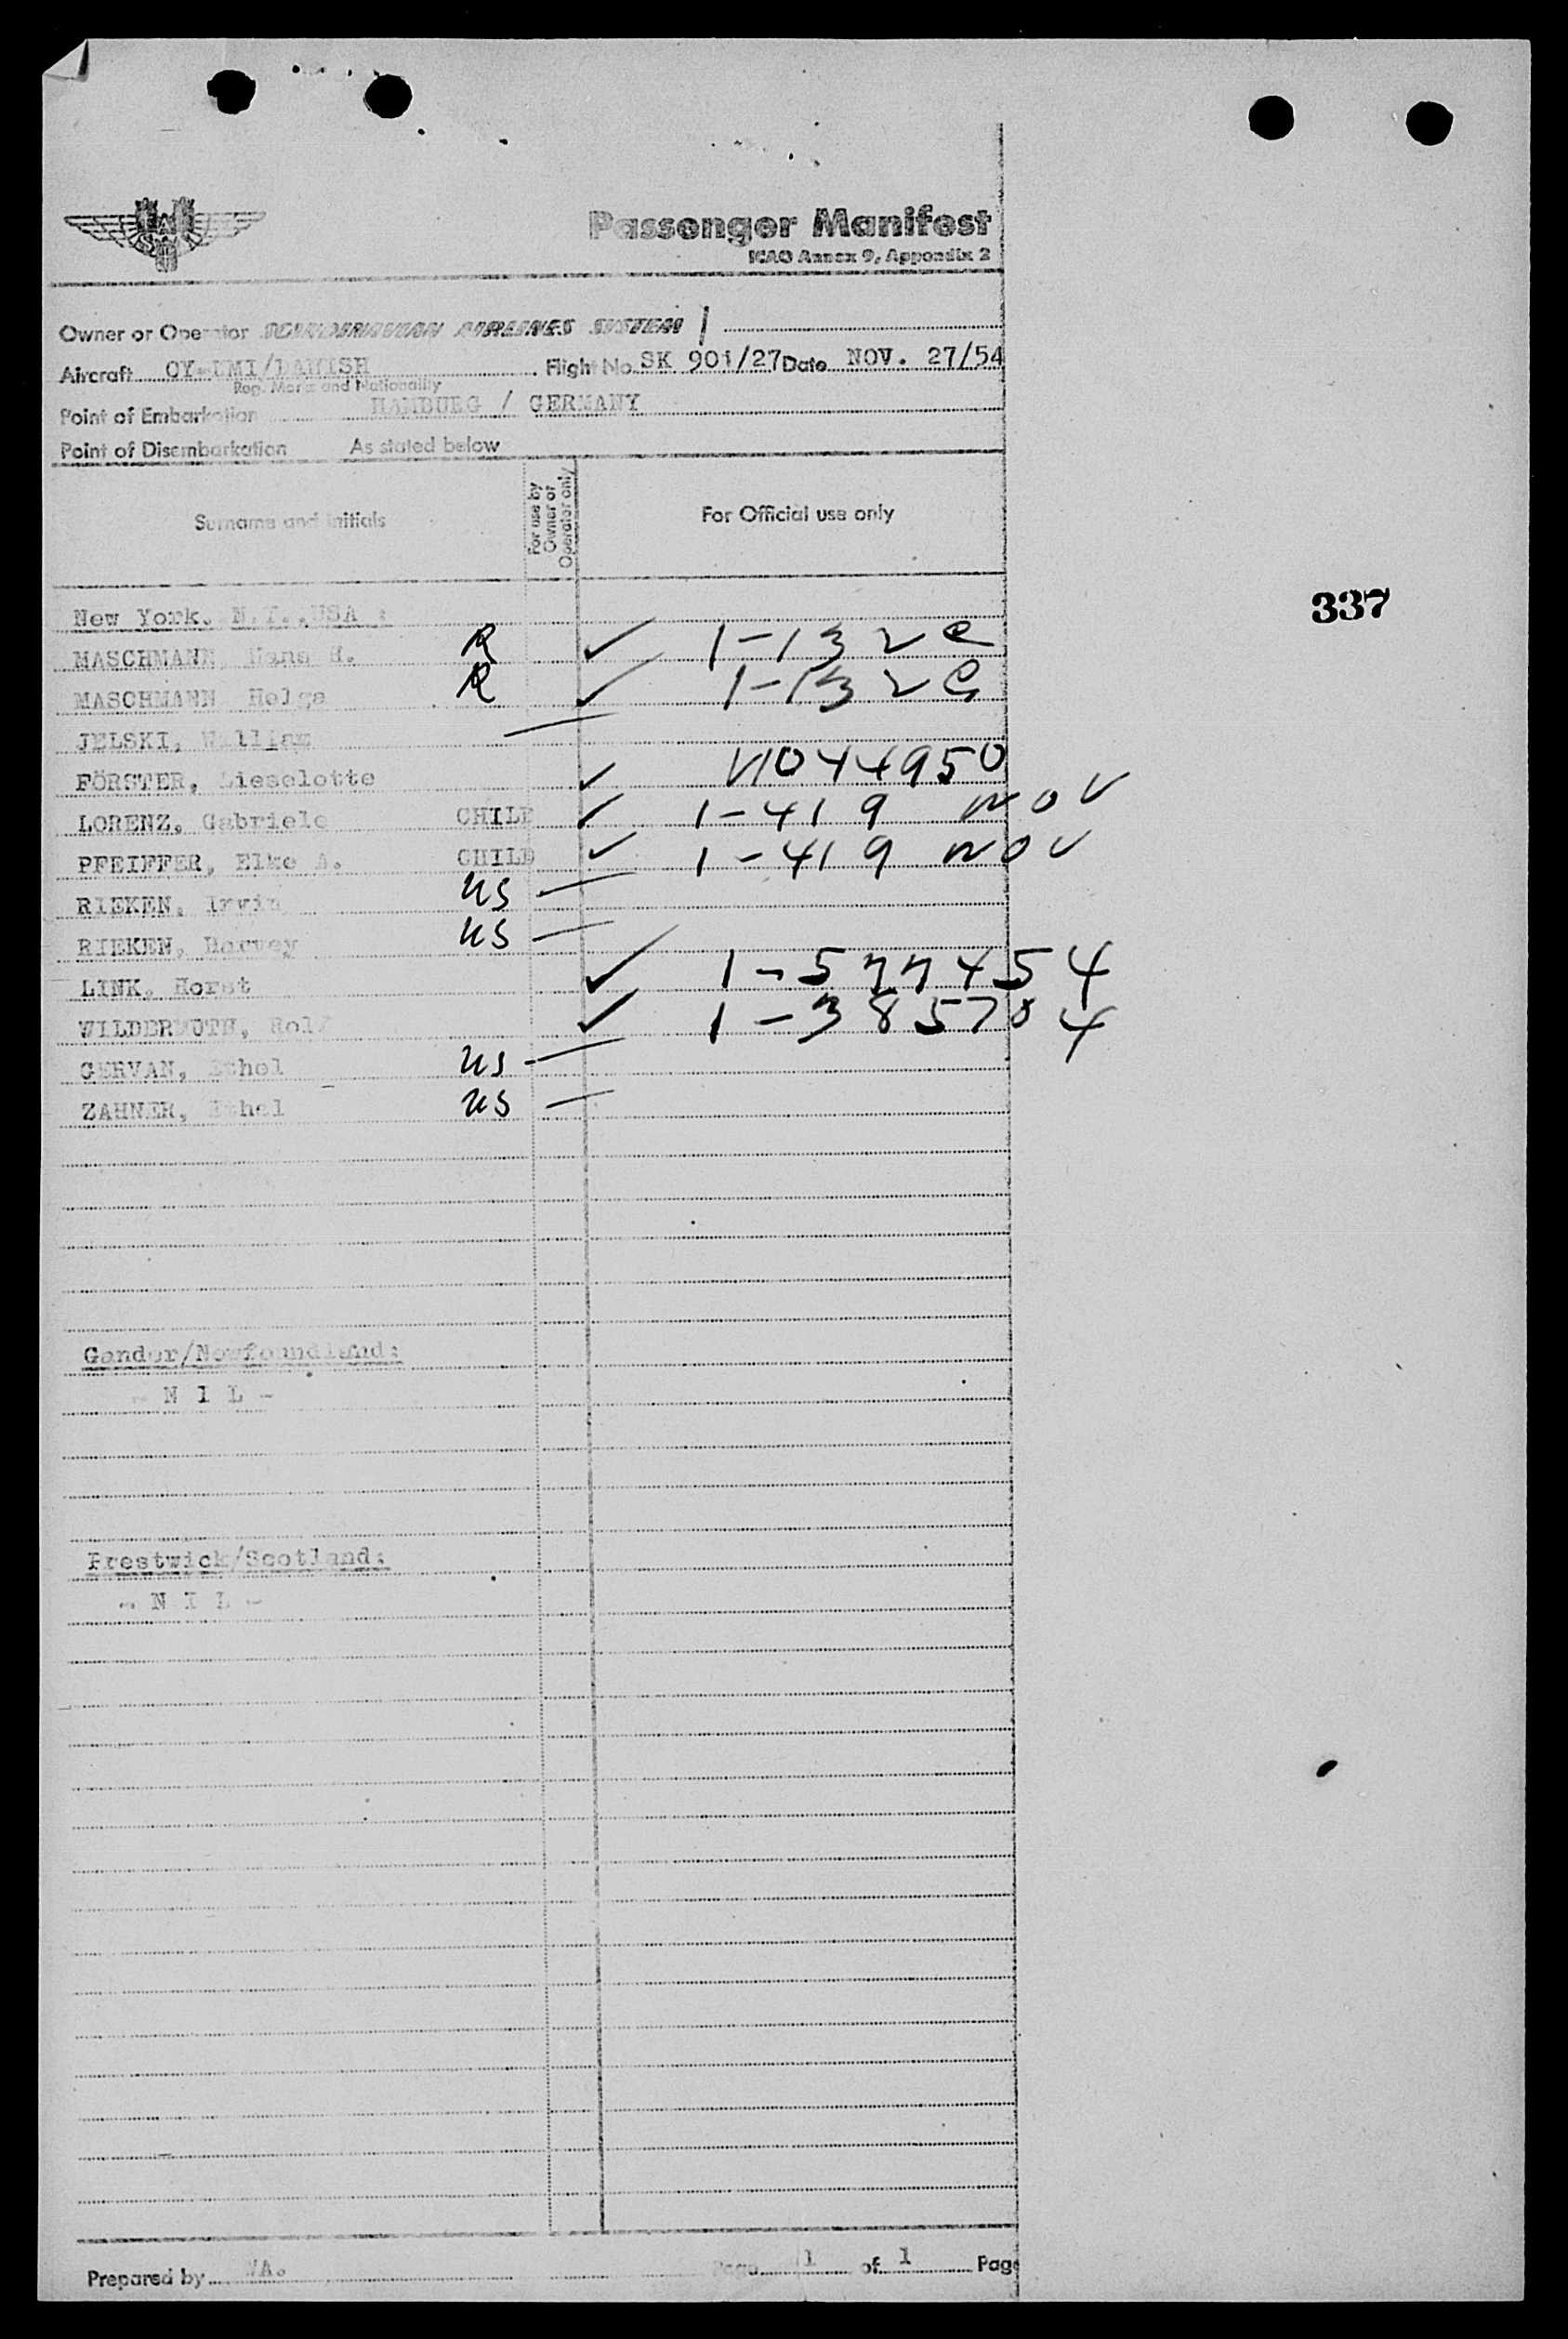 SAS
Passenger Manifest
ICAO Annex 9, Appendix 2
Owner or Operator SCANDINAVIAN AIRLINES SYSTEM /
Aircraft OY- /DANISH Flight No. SK 901/27 Date NOV. 27/54
Reg. Marks and Nationality
Point of Embarkation HAMBURG / GERMANY
Point of Disembarkation As stated below
Surname and initials
For use by Owner or Operator only
For Official use only
New York, N.Y., USA :
337
MASCHMANN, Hans H. R ✓ 1-132e
MASCHMANN Helga R ✓ 1-132e
JELSKI, William —
FÖRSTER, Lieselotte ✓ V1044950
LORENZ, Gabriele CHILD ✓ 1-419 NOV
PFEIFFER, Elke A. CHILD ✓ 1-419 NOV
RIEKEN, Irwin US —
RIEKEN, Harvey US —
LINK, Horst ✓ 1-577454
WILDERMUTH, Rolf ✓ 1-385704
GERVAN, Ethel US —
ZAHNER, Ethel US —
Gander/Newfoundland:
- N I L -
Prestwick/Scotland:
- N I L -
Prepared by WA. Page 1 of 1 Page